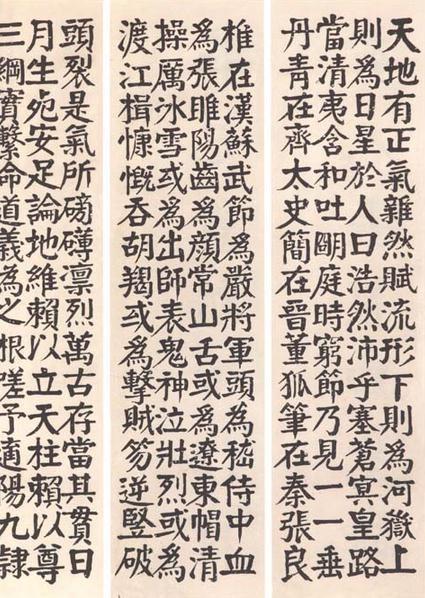 天地有正氣雜然賦流形下則為河嶽上
則為日星於人曰浩然沛乎塞蒼冥皇路
當清夷含和吐明庭時窮節乃見一一垂
丹青在齊太史簡在晉董狐筆在秦張良
椎在漢蘇武節為嚴將軍頭為嵇侍中血
為張睢陽齒為顏常山舌或為遼東帽清
操厲冰雪或為出師表鬼神泣壯烈或為
渡江楫慷慨吞胡羯或為擊賊笏逆豎破
頭裂是氣所磅礡凜烈萬古存當其貫日
月生死安足論地維賴以立天柱賴以尊
三綱實繫命道義為之根嗟予遘陽九隸